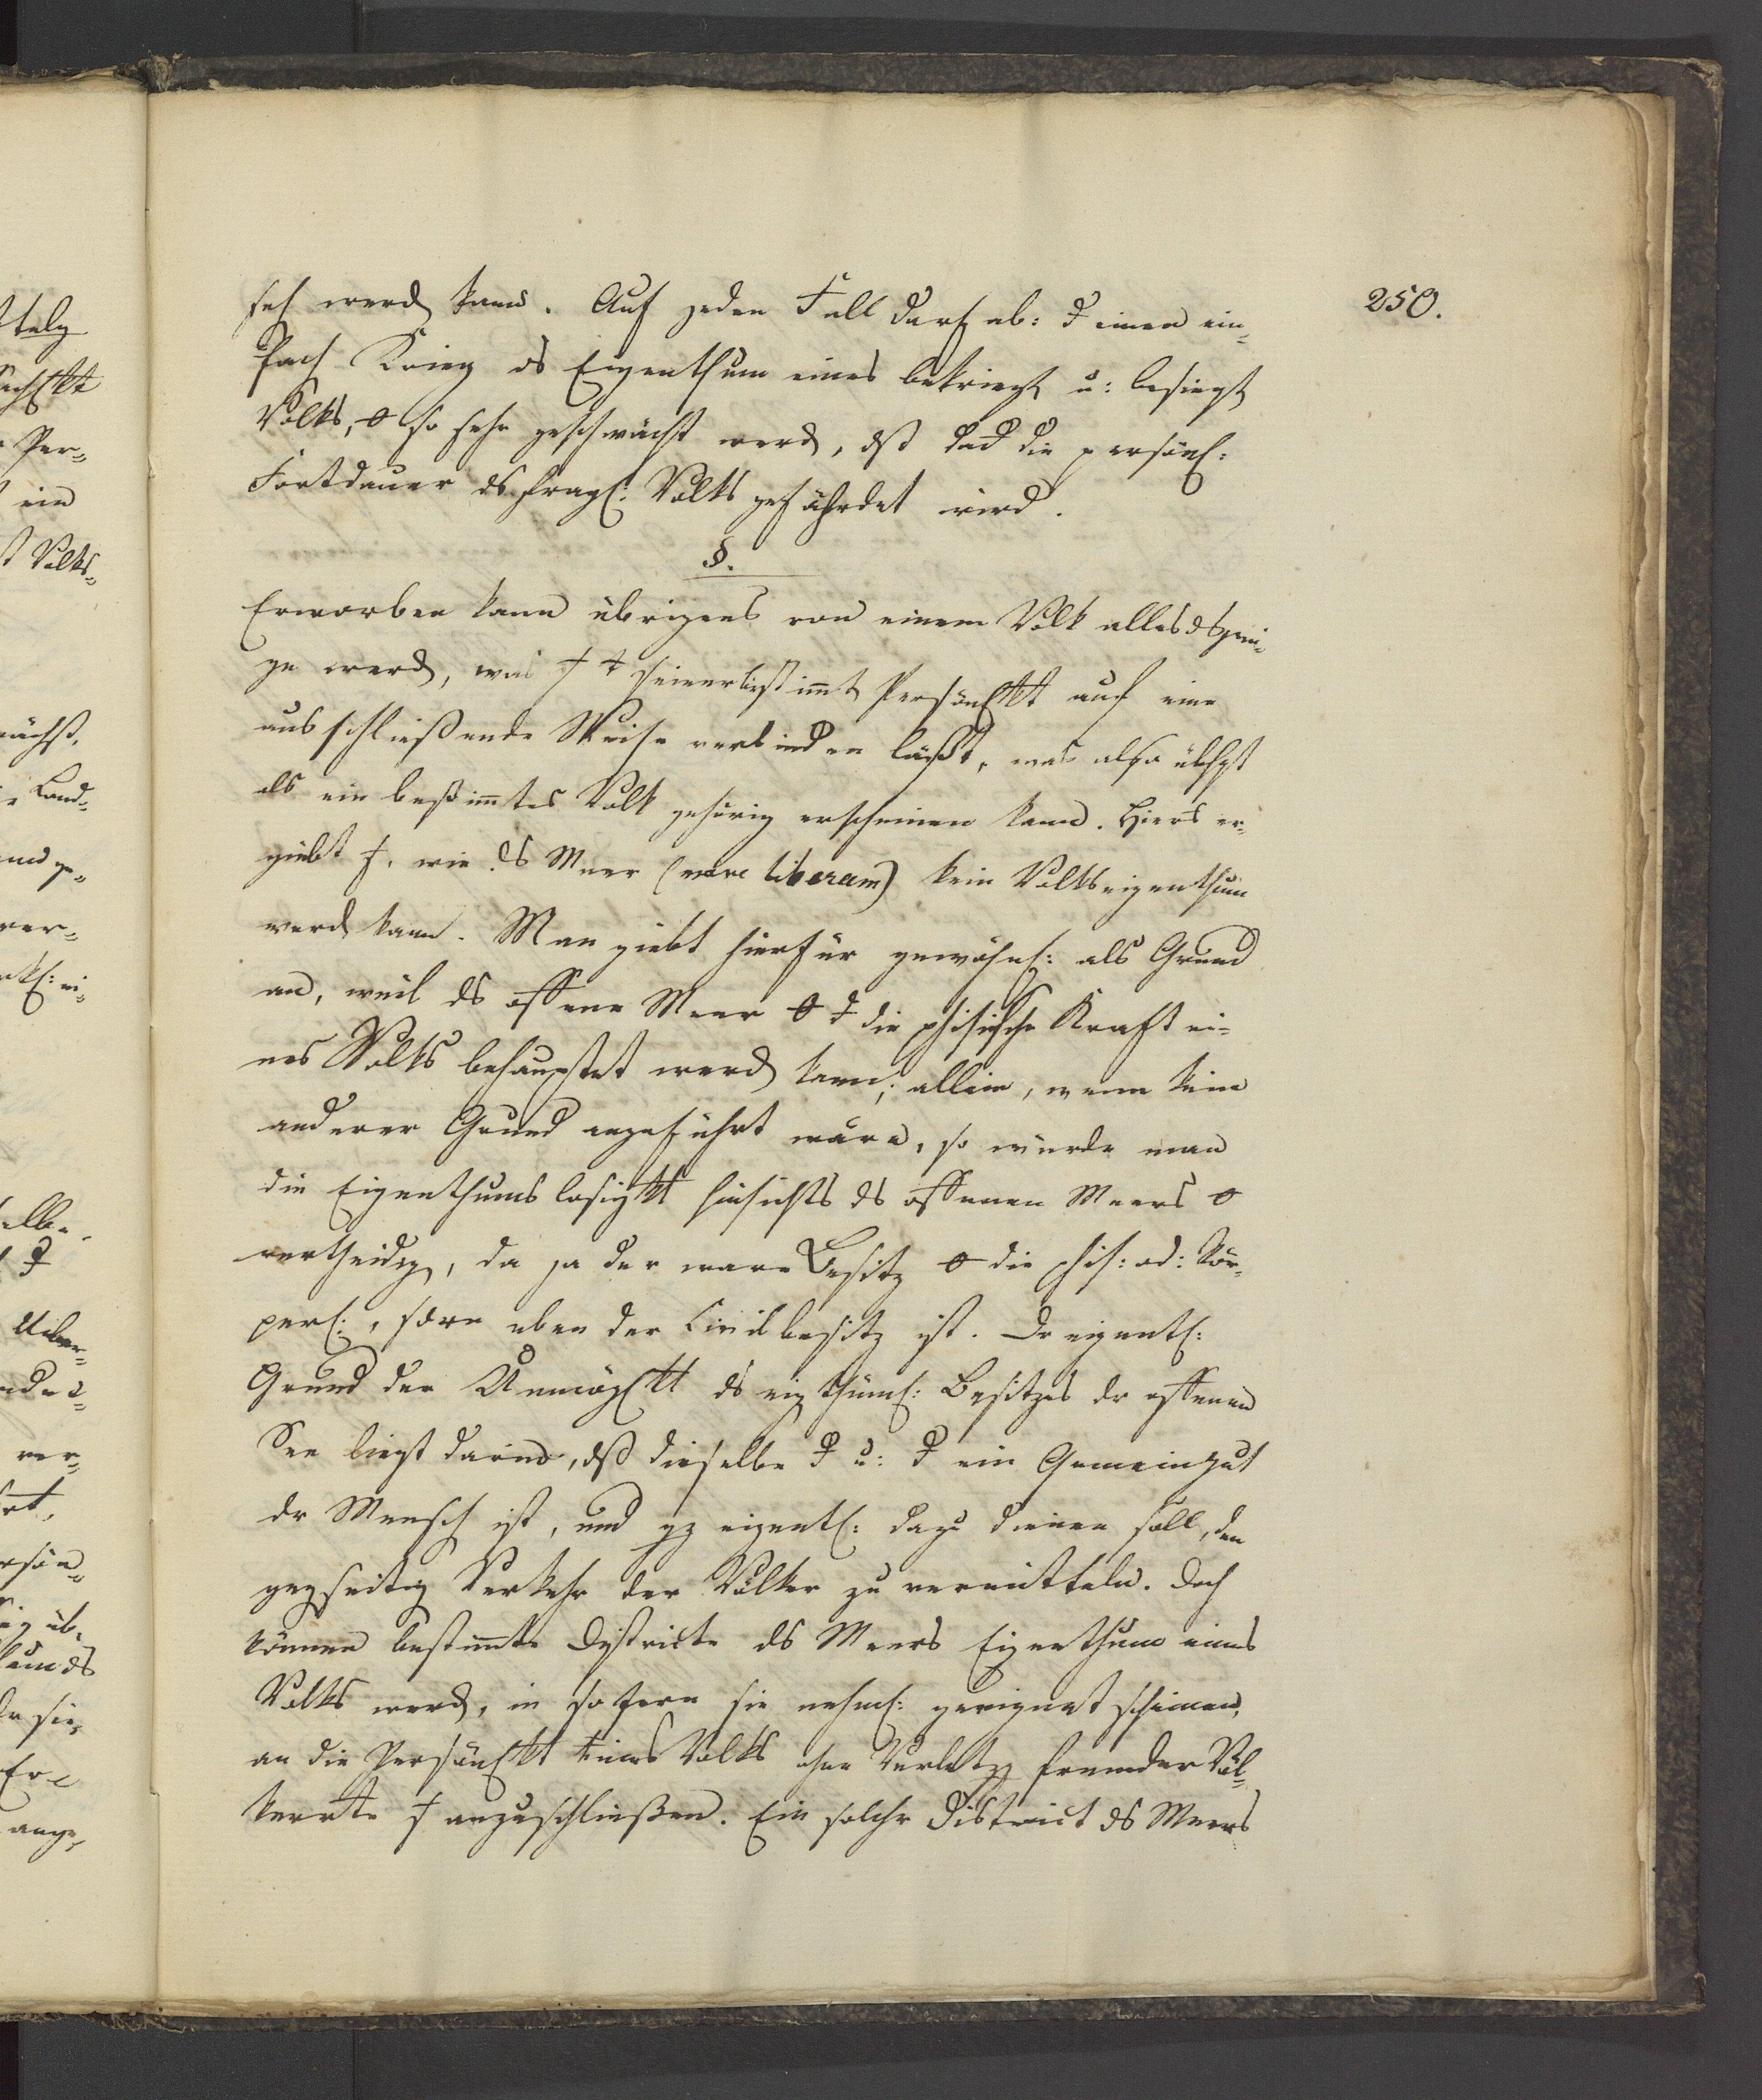 250.
seh werd kann. Auf jeden Fall darf ab: d einen ein-
fach Krieg ds Eigenthum eines bekriegt u: besiegt
Volks, 0 so sehr geschwächt werd, dß dad die persönl:
Fortdauer ds fragl: Volks gefährdet wird.
§.
Erworben kann übrigens von einem Volk alles dsjeni-
ge werd, was seiner bestimt Persönlkt auf eine
ausschließende Weise verbinden läßt, was also
als ein bestimtes Volk gehörig erscheinen kann. Hiers er-
giebt, wie ds Meer (mare liberam) kein Volkseigenthum
werd kann. Man giebt hierfür gewöhnl: als Grund
an, weil ds offene Meer 0 d die phisische Kraft ei-
nes Volks behauptet werd kann; allein, wenn kein
anderer Grund angeführt wäre, so würde man
die Eigenthumslosigkt hinsichts ds offenen Meers 0
vertheidig, da ja der ware Besitz 0 die phis: od: kör-
perl:, sdern eben der Civilbesitz ist. Dr eigentl:
Grund der Unmöglkt ds eigthüml: Besitzes dr offenen
See liegt darin, dß dieselbe d u: d ein Gemeingut
dr Mensch ist, und gz eigentl: dazu dienen soll, den
gegseitig Verkehr der Völker zu vermitteln. Doch
können bestimte Districte ds Meers Eigenthum eines
Volks werd, in sofern sie nehml: geeignet scheinen,
an die Persönlkt eines Volks ohne Verletzg fremder Völ-
kerrte anzuschließen. Ein solchr District ds Meers